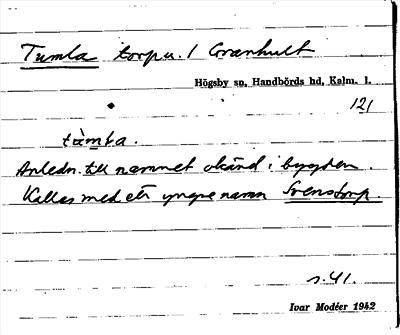 Tumla torpu. / Granhult
Högsby sn, Handbörds hd, Kalm. l.
121
tùmla.
Anledn. till namnet okänd i bygden.
Kallas med ett yngre namn Svenstorp.
s. 41.
Ivar Modéer 1942